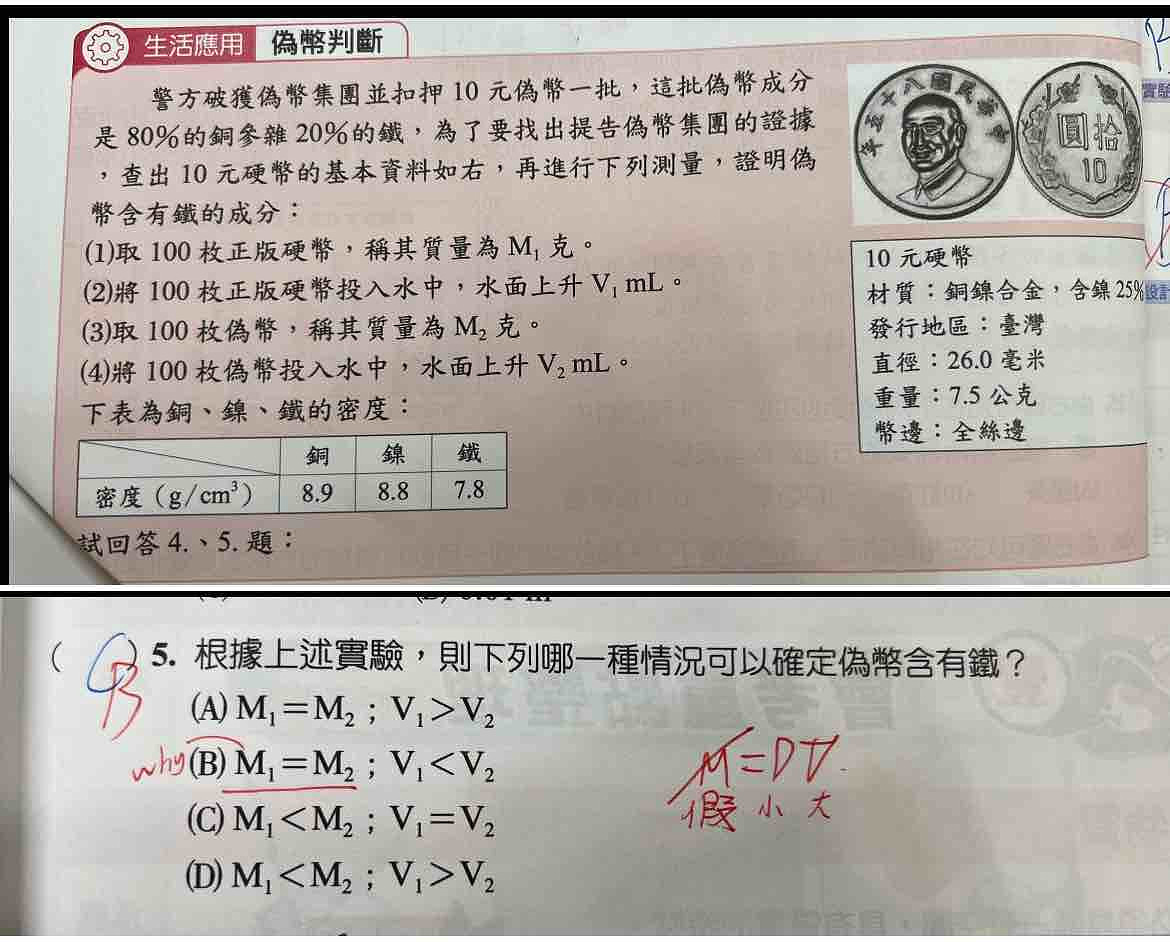 生活應用 偽幣判斷
警方破獲偽幣集團並扣押 10 元偽幣一批，這批偽幣成分
是 80%的銅參雜 20%的鐵，為了要找出提告偽幣集團的證據
，查出 10 元硬幣的基本資料如右，再進行下列測量，證明偽
幣含有鐵的成分：
(1)取 100 枚正版硬幣，稱其質量為 M₁ 克。
(2)將 100 枚正版硬幣投入水中，水面上升 V₁ mL。
(3)取 100 枚偽幣，稱其質量為 M₂ 克。
(4)將 100 枚偽幣投入水中，水面上升 V₂ mL。
下表為銅、鎳、鐵的密度：
銅 鎳 鐵
密度（g/cm³） 8.9 8.8 7.8
試回答 4.、5. 題：
年五十八國民華中
拾圓
10
10 元硬幣
材質：銅鎳合金，含鎳 25%
發行地區：臺灣
直徑：26.0 毫米
重量：7.5 公克
幣邊：全絲邊
實驗
設計
( B ) 5. 根據上述實驗，則下列哪一種情況可以確定偽幣含有鐵？
(A) M₁＝M₂；V₁＞V₂
why (B) M₁＝M₂；V₁＜V₂
(C) M₁＜M₂；V₁＝V₂
(D) M₁＜M₂；V₁＞V₂
M=DV
假 小 大